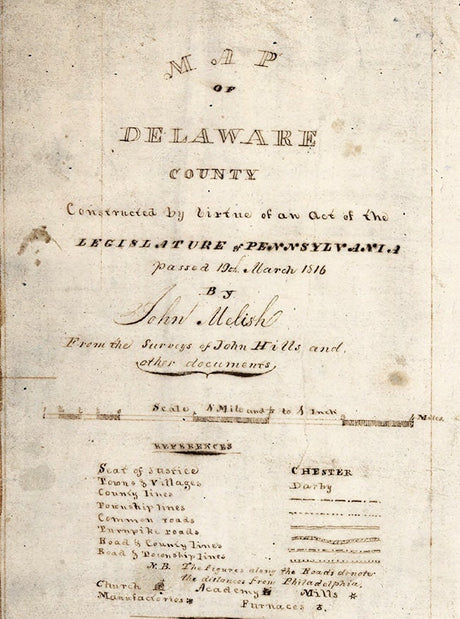 MAP
OF
DELAWARE
COUNTY
Constructed by Virtue of an Act of the
LEGISLATURE of PENNSYLVANIA
passed 19th March 1816
By
John Melish
From the Surveys of John Hills and
other documents
Scale 1 Mile and to 1 Inch Miles
REFERENCES
Seat of Justice CHESTER
Towns & Villages Darby
County lines
Township lines
Common roads
Turnpike roads
Road & County lines
Road & Township lines
N.B. The figures along the Roads denote
the distances from Philadelphia.
Church Academy Mills
Manufactories Furnaces